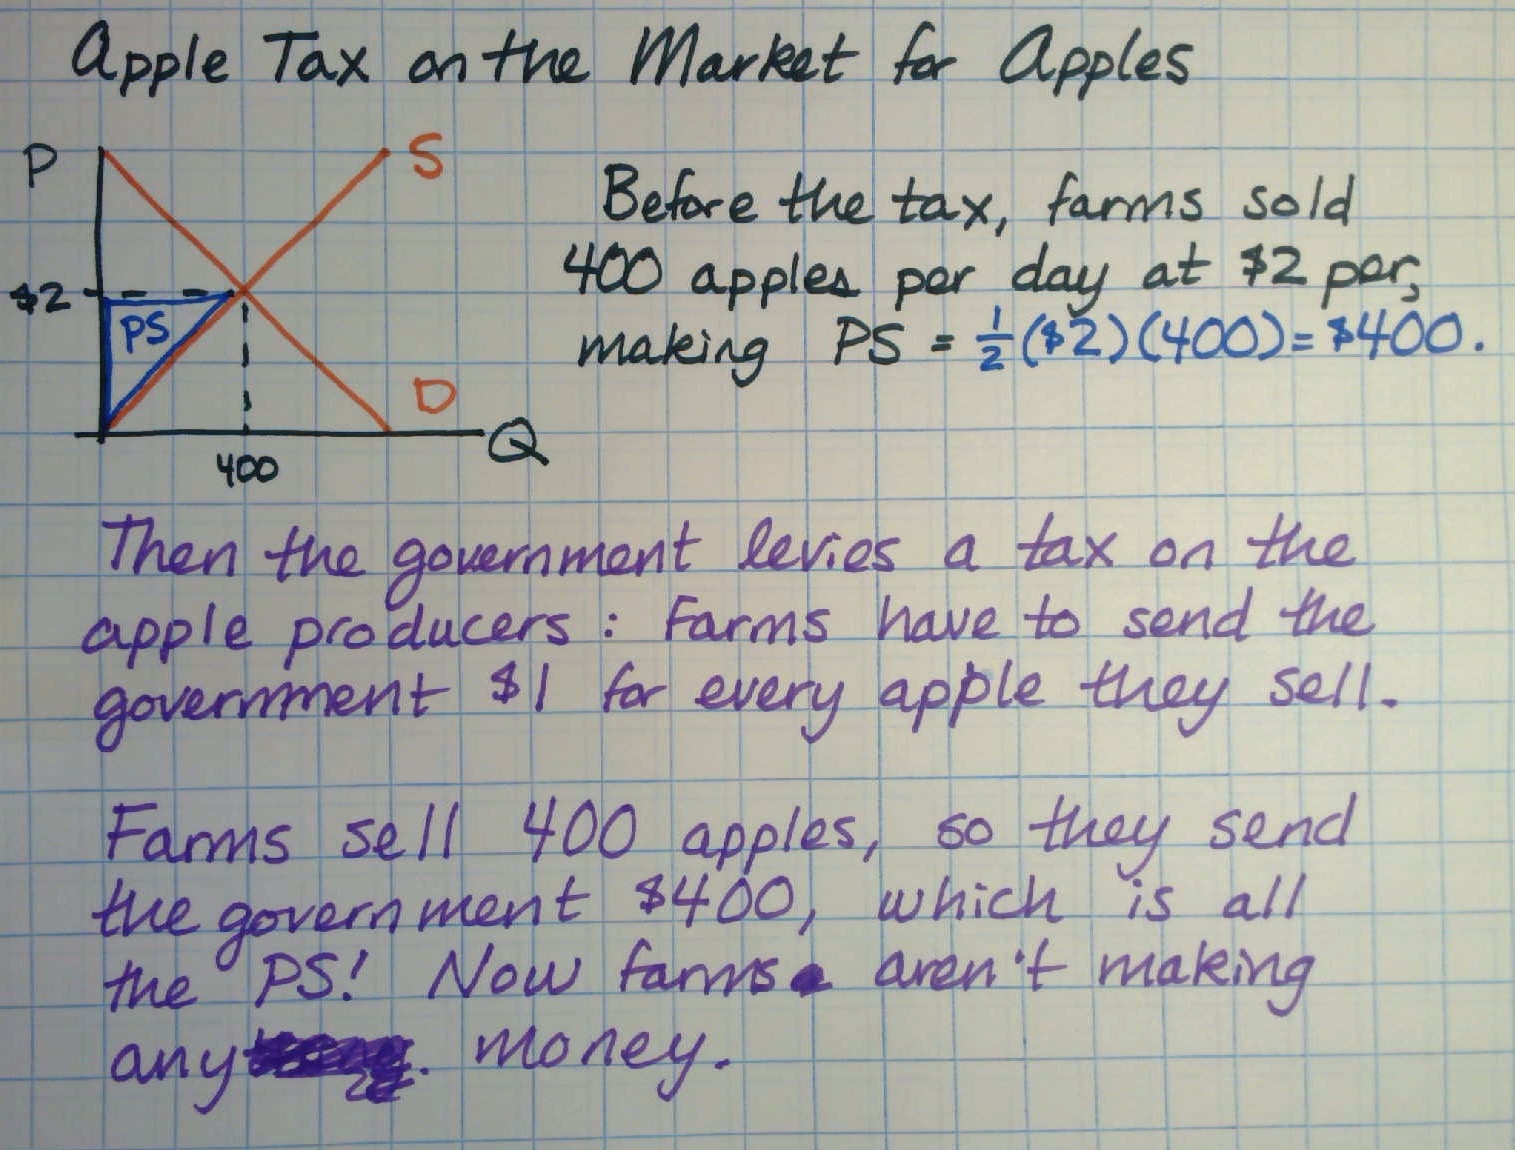 Apple Tax on the Market for Apples
P
S
$2
PS
D
Q
400
Before the tax, farms sold
400 apples per day at $2 per,
making PS = 1/2 ($2)(400) = $400.
Then the government levies a tax on the
apple producers: Farms have to send the
government $1 for every apple they sell.
Farms sell 400 apples, so they send
the government $400, which is all
the PS! Now farms aren't making
any money.